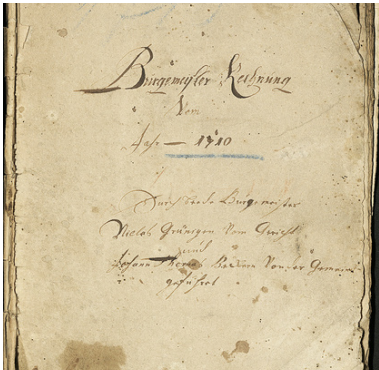 Burgemeister Rechnung
Vom
Jahr — 1710
Durch beede Burgemeister
Niclos Grünigen Vom Gericht
und
Johann Von der Gemein
geführet